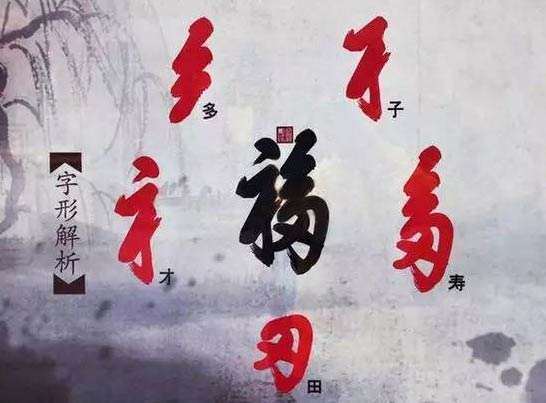 字形解析
多
子
福
才
寿
田